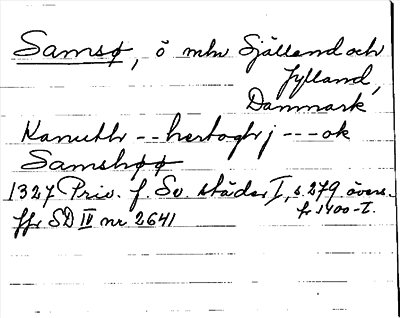 Samsø, ö mln Själland och
Jylland,
Danmark
Kanuthr -- hertoghj --- ok
Samshøø
1327 Priv. f. Sv. städer I, s. 279 övers.
fr. 1400-t.
ffr SD IV nr 2641